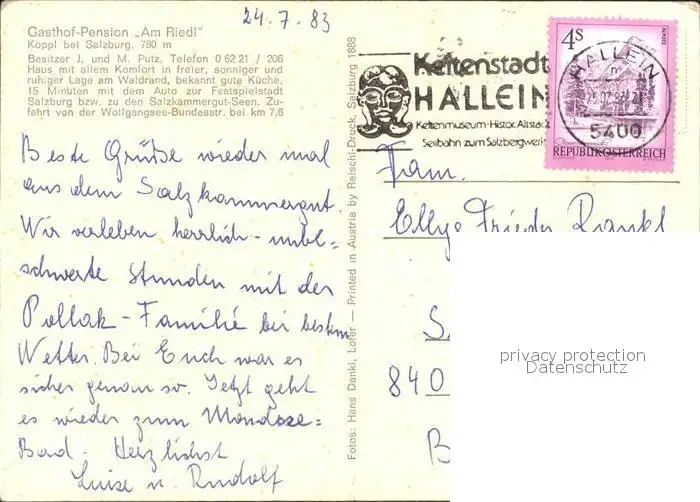 24.7.83
Gasthof-Pension „Am Riedl“
Koppl bei Salzburg, 780 m
Besitzer J. und M. Putz, Telefon 0 62 21 / 206
Haus mit allem Komfort in freier, sonniger und
ruhiger Lage am Waldrand, bekannt gute Küche,
15 Minuten mit dem Auto zur Festspielstadt
Salzburg bzw. zu den Salzkammergut-Seen. Zu-
fahrt von der Wolfgangsee-Bundesstr. bei km 7,6
Beste Grüße wieder mal
aus dem Salzkammergut.
Wir verleben herrlich - unbe-
schwerte Stunden mit der
Pollak-Familie bei bestem
Wetter. Bei Euch war es
sicher genau so. Jetzt geht
es wieder zum Mondsee=
Bad. Herzlichst
Luise u. Rudolf
Fotos: Hans Dankl, Lofer — Printed in Austria by Reischl-Druck, Salzburg 1888
Keltenstadt
HALLEIN
Keltenmuseum·Histor. Altstadt
Seilbahn zum Salzbergwerk
4s
HALLEIN
5400
REPUBLIK ÖSTERREICH
Fam.
Elly
840
B
privacy protection
Datenschutz